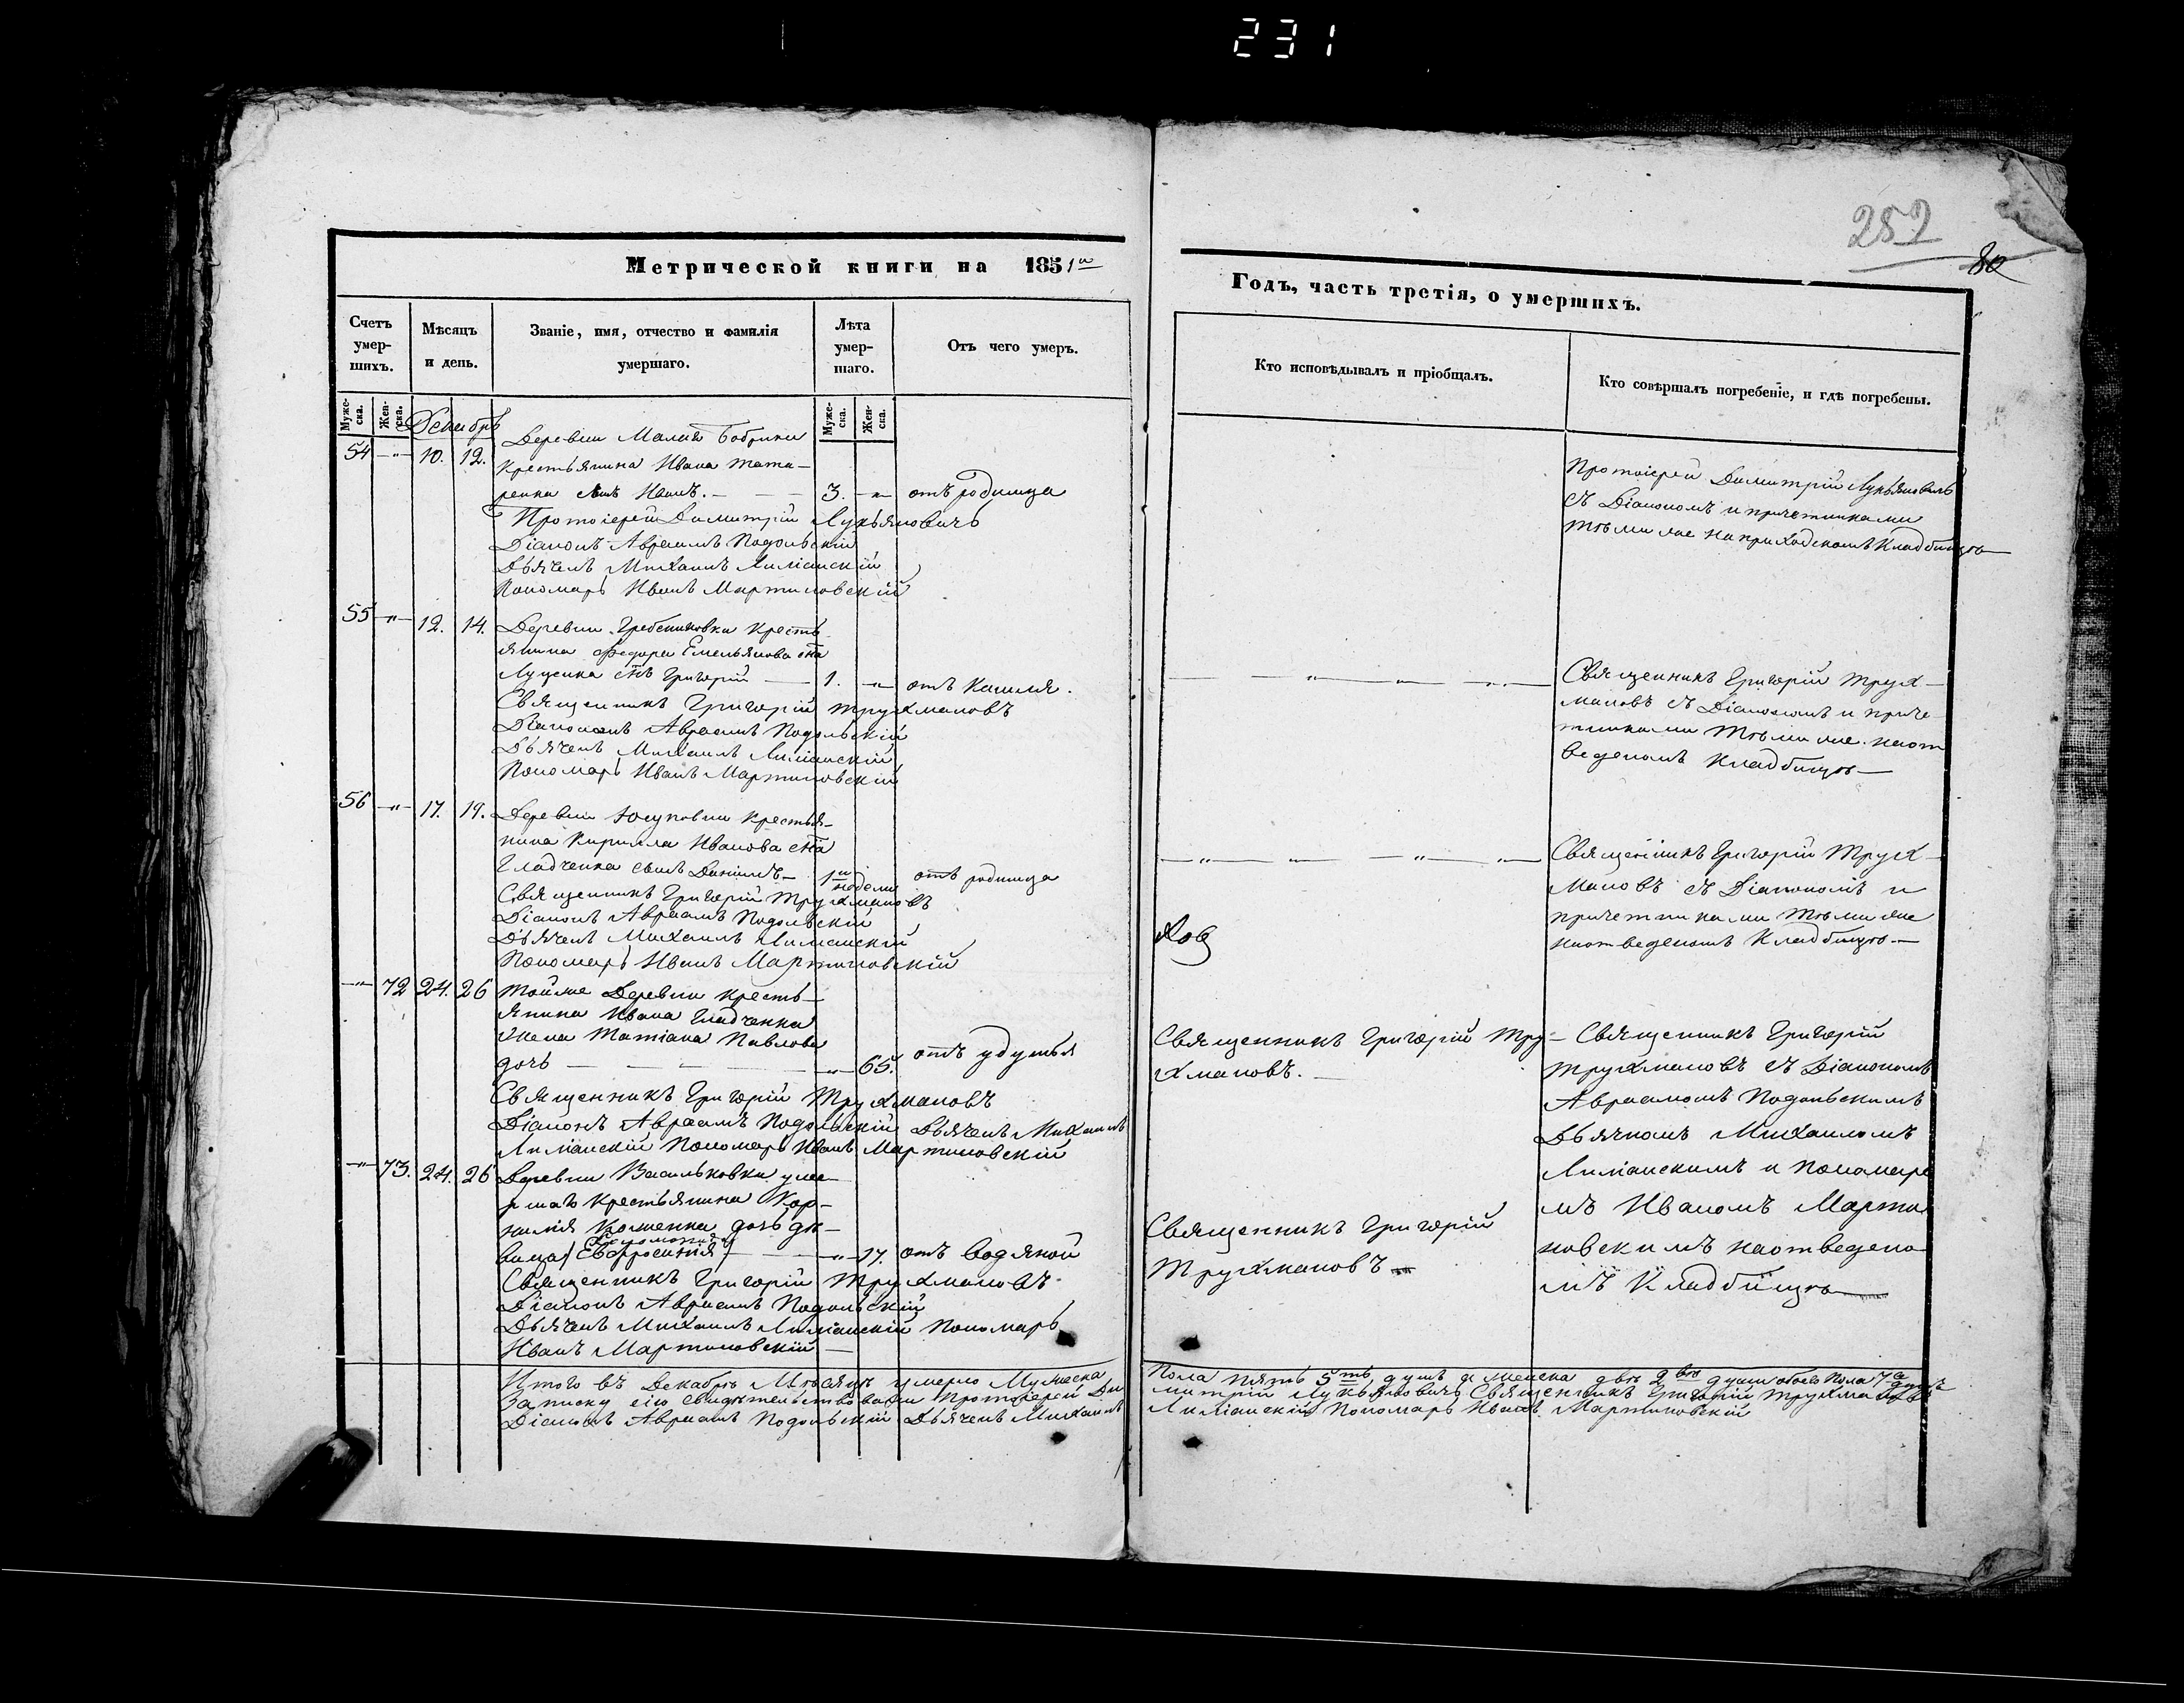 231
252
80
Метрической книги на 1851й
Счетъ умер-шихъ.
Мѣсяцъ и день.
Званіе, имя, отчество и фамилія умершаго.
Лѣта умер-шаго.
Отъ чего умеръ.
Муже-ска.
Жен-ска.
Муже-ска.
Жен-ска.
Декабрь
54 —"— 10. 12.
Деревни Малой Бобрики
крестьянина Ивана Тата—
ренка сынъ Иванъ. — 3. —"— отъ родимца
Протоіерей Димитрій Лукьяновичъ
Діаконъ Авраамъ Подольскій
Дьячекъ Михаилъ Лиманскій
Пономарь Иванъ Мартиновскій
55 —"— 12. 14.
Деревни Гребениковки кресть-
янина Федора Емельянова сна
Луценка снъ Григорій — 1. —"— отъ кашля.
Священникъ Григорій Трухмановъ
Діаконъ Авраамъ Подольскій
Дьячекъ Михаилъ Лиманскій
Пономарь Иванъ Мартиновскій
56 —"— 17. 19.
Деревни Юсуповки крестья-
нина Кирилла Иванова сна
Гладченка сынъ Даніилъ — 1й недели отъ родимца
Священникъ Григорій Трухмановъ
Діаконъ Авраамъ Подольскій
Дьячекъ Михаилъ Лиманскій
Пономарь Иванъ Мартиновскій
—"— 72 24. 26
Тойже Деревни кресть—
янина Ивана Гладченка
жена Татіана Павлова
дочь — —"— 65. отъ удушья
Священникъ Григорій Трухмановъ
Діаконъ Авраамъ Подольскій Дьячекъ Михаилъ
Лиманскій Пономарь Иванъ Мартиновскій
—"— 73. 24. 26
Деревни Васильковки умер
ршаго крестьянина Кор—
нилія дочь дѣ—
вица Евфросинія — —"— 17. отъ водяной
Священникъ Григорій Трухмановъ
Діаконъ Авраамъ Подольскій
Дьячекъ Михаилъ Лиманскій Пономарь
Иванъ Мартиновскій —
Итого въ Декабрѣ Мѣсяцѣ умерло Мужеска
Записку сію свидѣтельствовали Протоіерей Ди
Діаконъ Авраамъ Подольскій Дьячекъ Михаилъ
Годъ, часть третія, о умершихъ.
Кто исповѣдывалъ и пріобщалъ.
Кто совѣршалъ погребеніе, и гдѣ погребены.
Протоіерей Димитрій Лукьяновичъ
съ Діакономъ и причетниками
тѣми же на приходскомъ кладбищѣ—
Священникъ Григорій Трух—
мановъ съ Діакономъ и приче-
тниками тѣми же на от
веденомъ кладбищѣ—
Священникъ Григорій Трух—
мановъ съ Діакономъ и
причетниками тѣми же
на отведеномъ кладбищѣ.—
Священникъ Григорій Тру-
хмановъ. —
Священникъ Григорій
Трухмановъ съ Діакономъ
Авраамомъ Подольскимъ
Дьячкомъ Михаиломъ
Лиманскимъ и Пономаре
мъ Иваномъ Марти
новскимъ на отведено
мъ кладбищѣ
Священникъ Григорій
Трухмановъ
Пола пять 5ть душъ а женска двѣ 2вѣ души обоего пола 7 душъ
митрій Лукьяновичъ Священникъ Григорій Трухмановъ
Лиманскій Пономарь Иванъ Мартиновскій